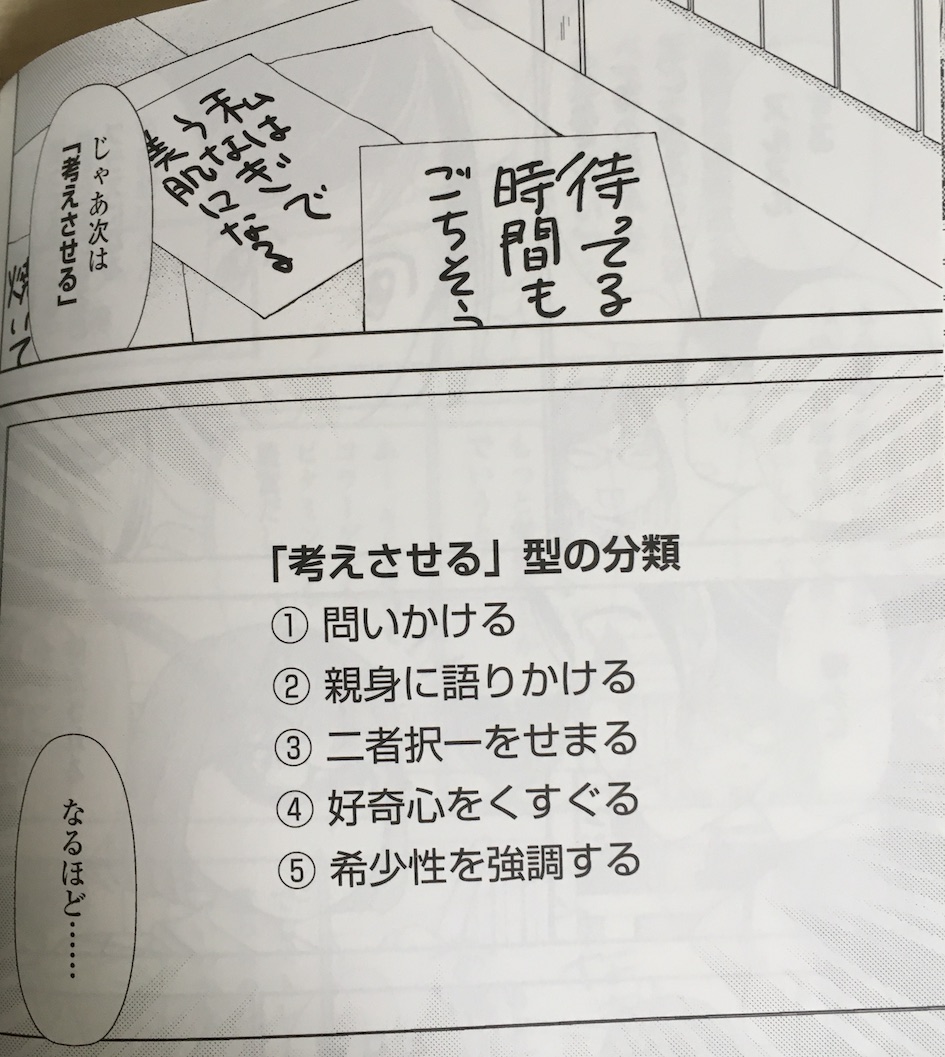 待ってる
時間も
ごちそう
私は
うなぎで
美肌になる
じゃあ次は
「考えさせる」
「考えさせる」型の分類
① 問いかける
② 親身に語りかける
③ 二者択一をせまる
④ 好奇心をくすぐる
⑤ 希少性を強調する
なるほど……